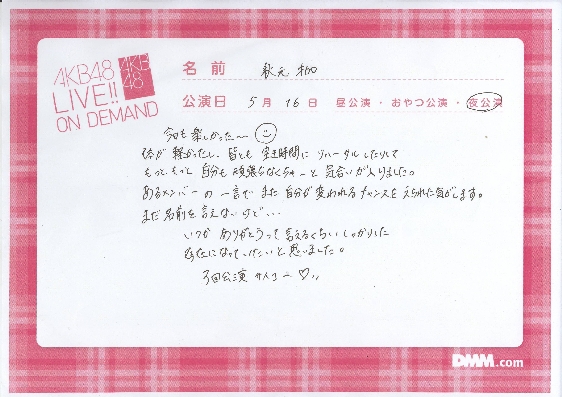 AKB48
LIVE!!
ON DEMAND
AKB
48
名前 秋元 才加
公演日 5月16日 昼公演・おやつ公演・夜公演
今日も楽しかった〜
体が軽かったし、皆とも空き時間にリハーサルしたりして
もっともっと自分も頑張らなくちゃーと気合いが入りました。
あるメンバーの一言でまた自分が変われるチャンスをえられた気がします。
まだ名前を言えないけど…
いつかありがとうって言えるくらいしっかりした
存在になっていけたいと思いました。
3回公演サイコー♡
DMM.com